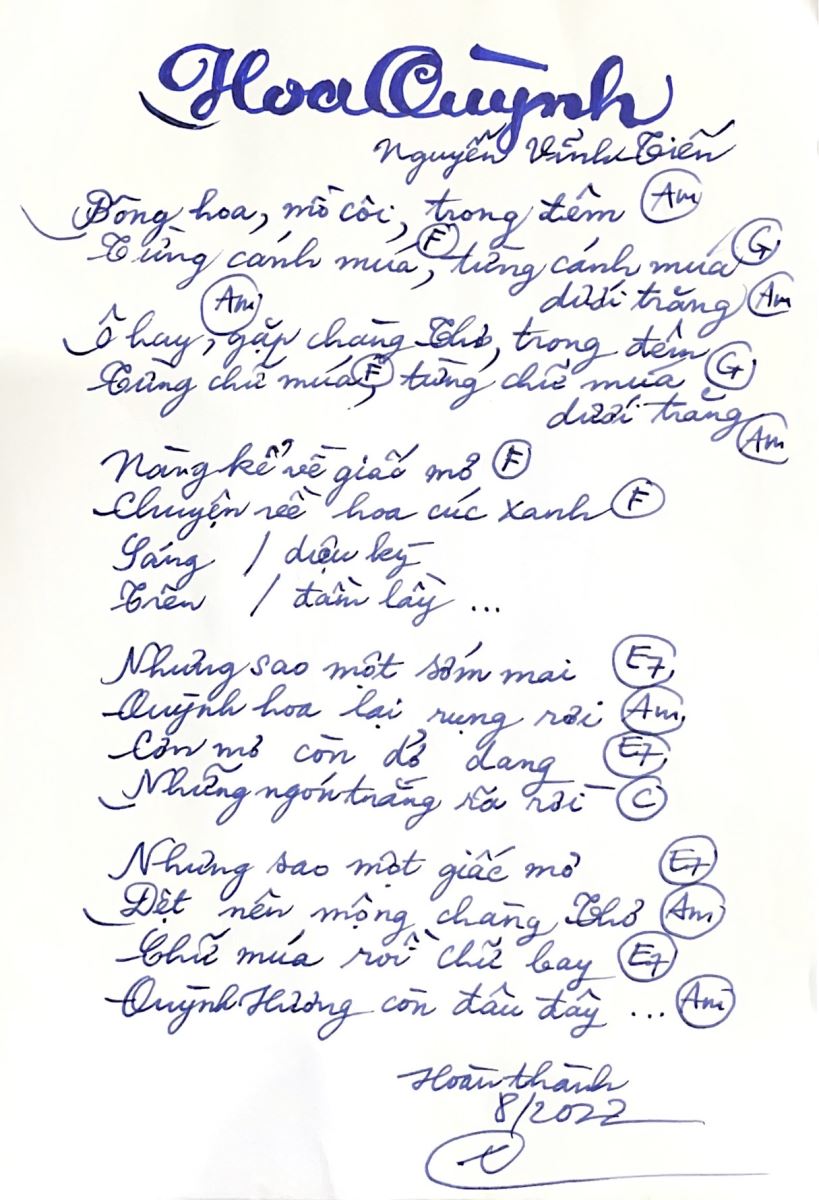 Hoa Quỳnh
Nguyễn Vĩnh Tiến
Bông hoa, mồ côi, trong đêm (Am)
Từng cánh múa (F), từng cánh múa (G)
dưới trăng (Am)
(Am)
Ô hay, gặp chàng Thơ, trong đêm
Từng chữ múa (F), từng chữ múa (G)
dưới trăng (Am)
Nàng kể về giấc mơ (F)
Chuyện về hoa cúc xanh (F)
Sáng / diệu kỳ
Trên / đầm lầy ...
Nhưng sao một sớm mai (E7)
Quỳnh hoa lại rụng rơi (Am)
Cơn mơ còn dở dang (E7)
Những ngón trăng rã rời (C)
Nhưng sao một giấc mơ (E7)
Dệt nên mộng chàng Thơ (Am)
Chữ múa rồi chữ bay (E7)
Quỳnh Hương còn đâu đây ... (Am)
Hoàn thành
8/2022